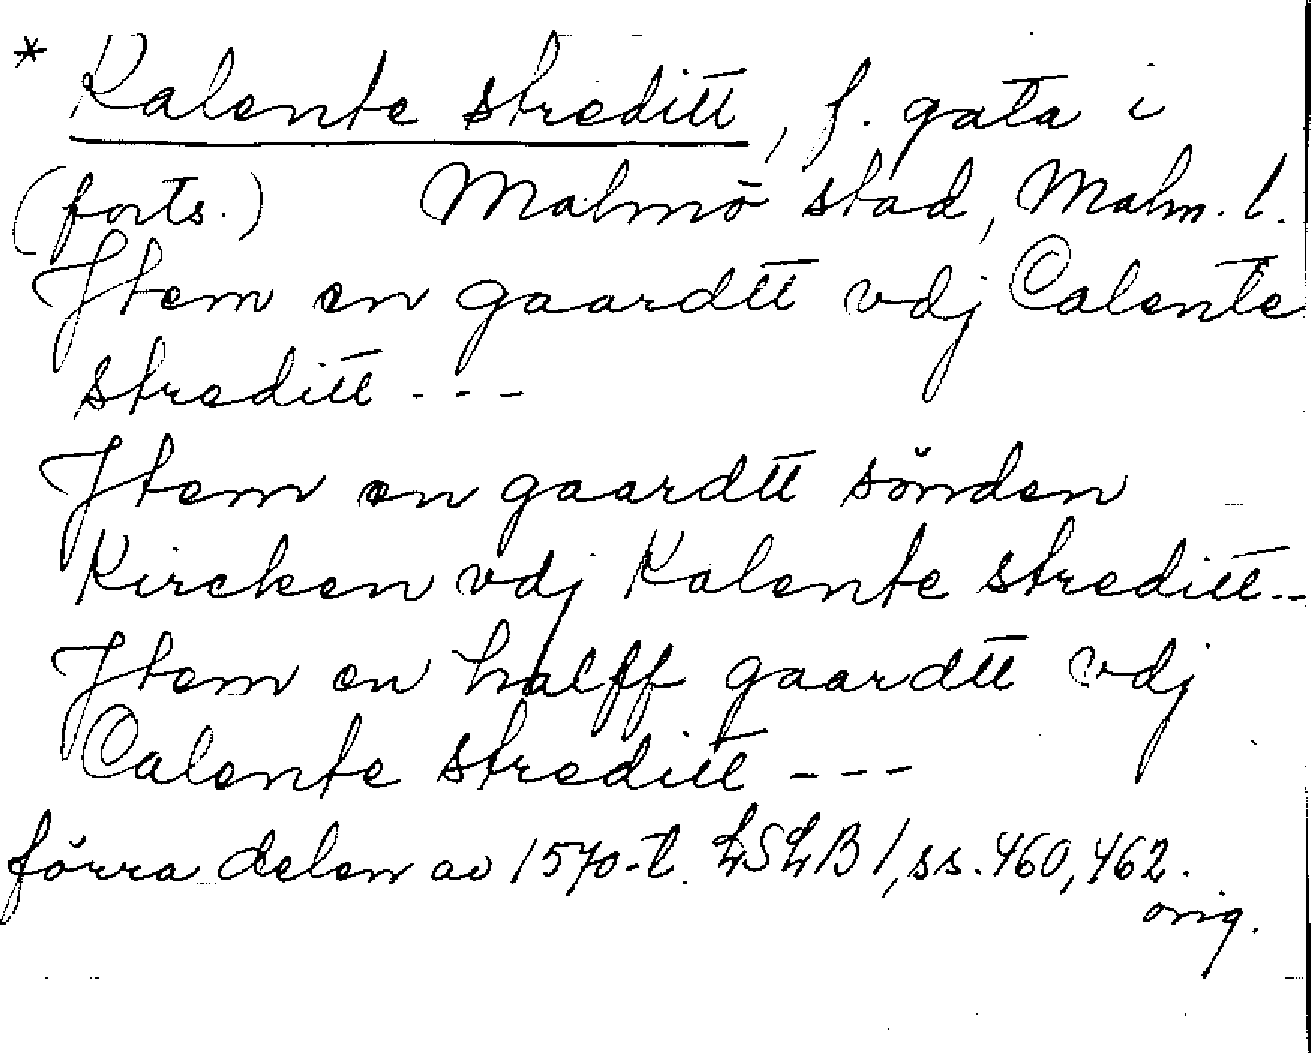 * Kalente streditt, f. gata i
(forts.) Malmö stad, Malm. l.
Jtem en gaardtt vdj Calente
streditt ---
Jtem en gaardtt sönden
Kircken vdj Kalente streditt--
Jtem en halff gaardtt vdj
Calente streditt ---
förra delen av 1570-t. LSLB 1, ss. 460, 462.
orig.